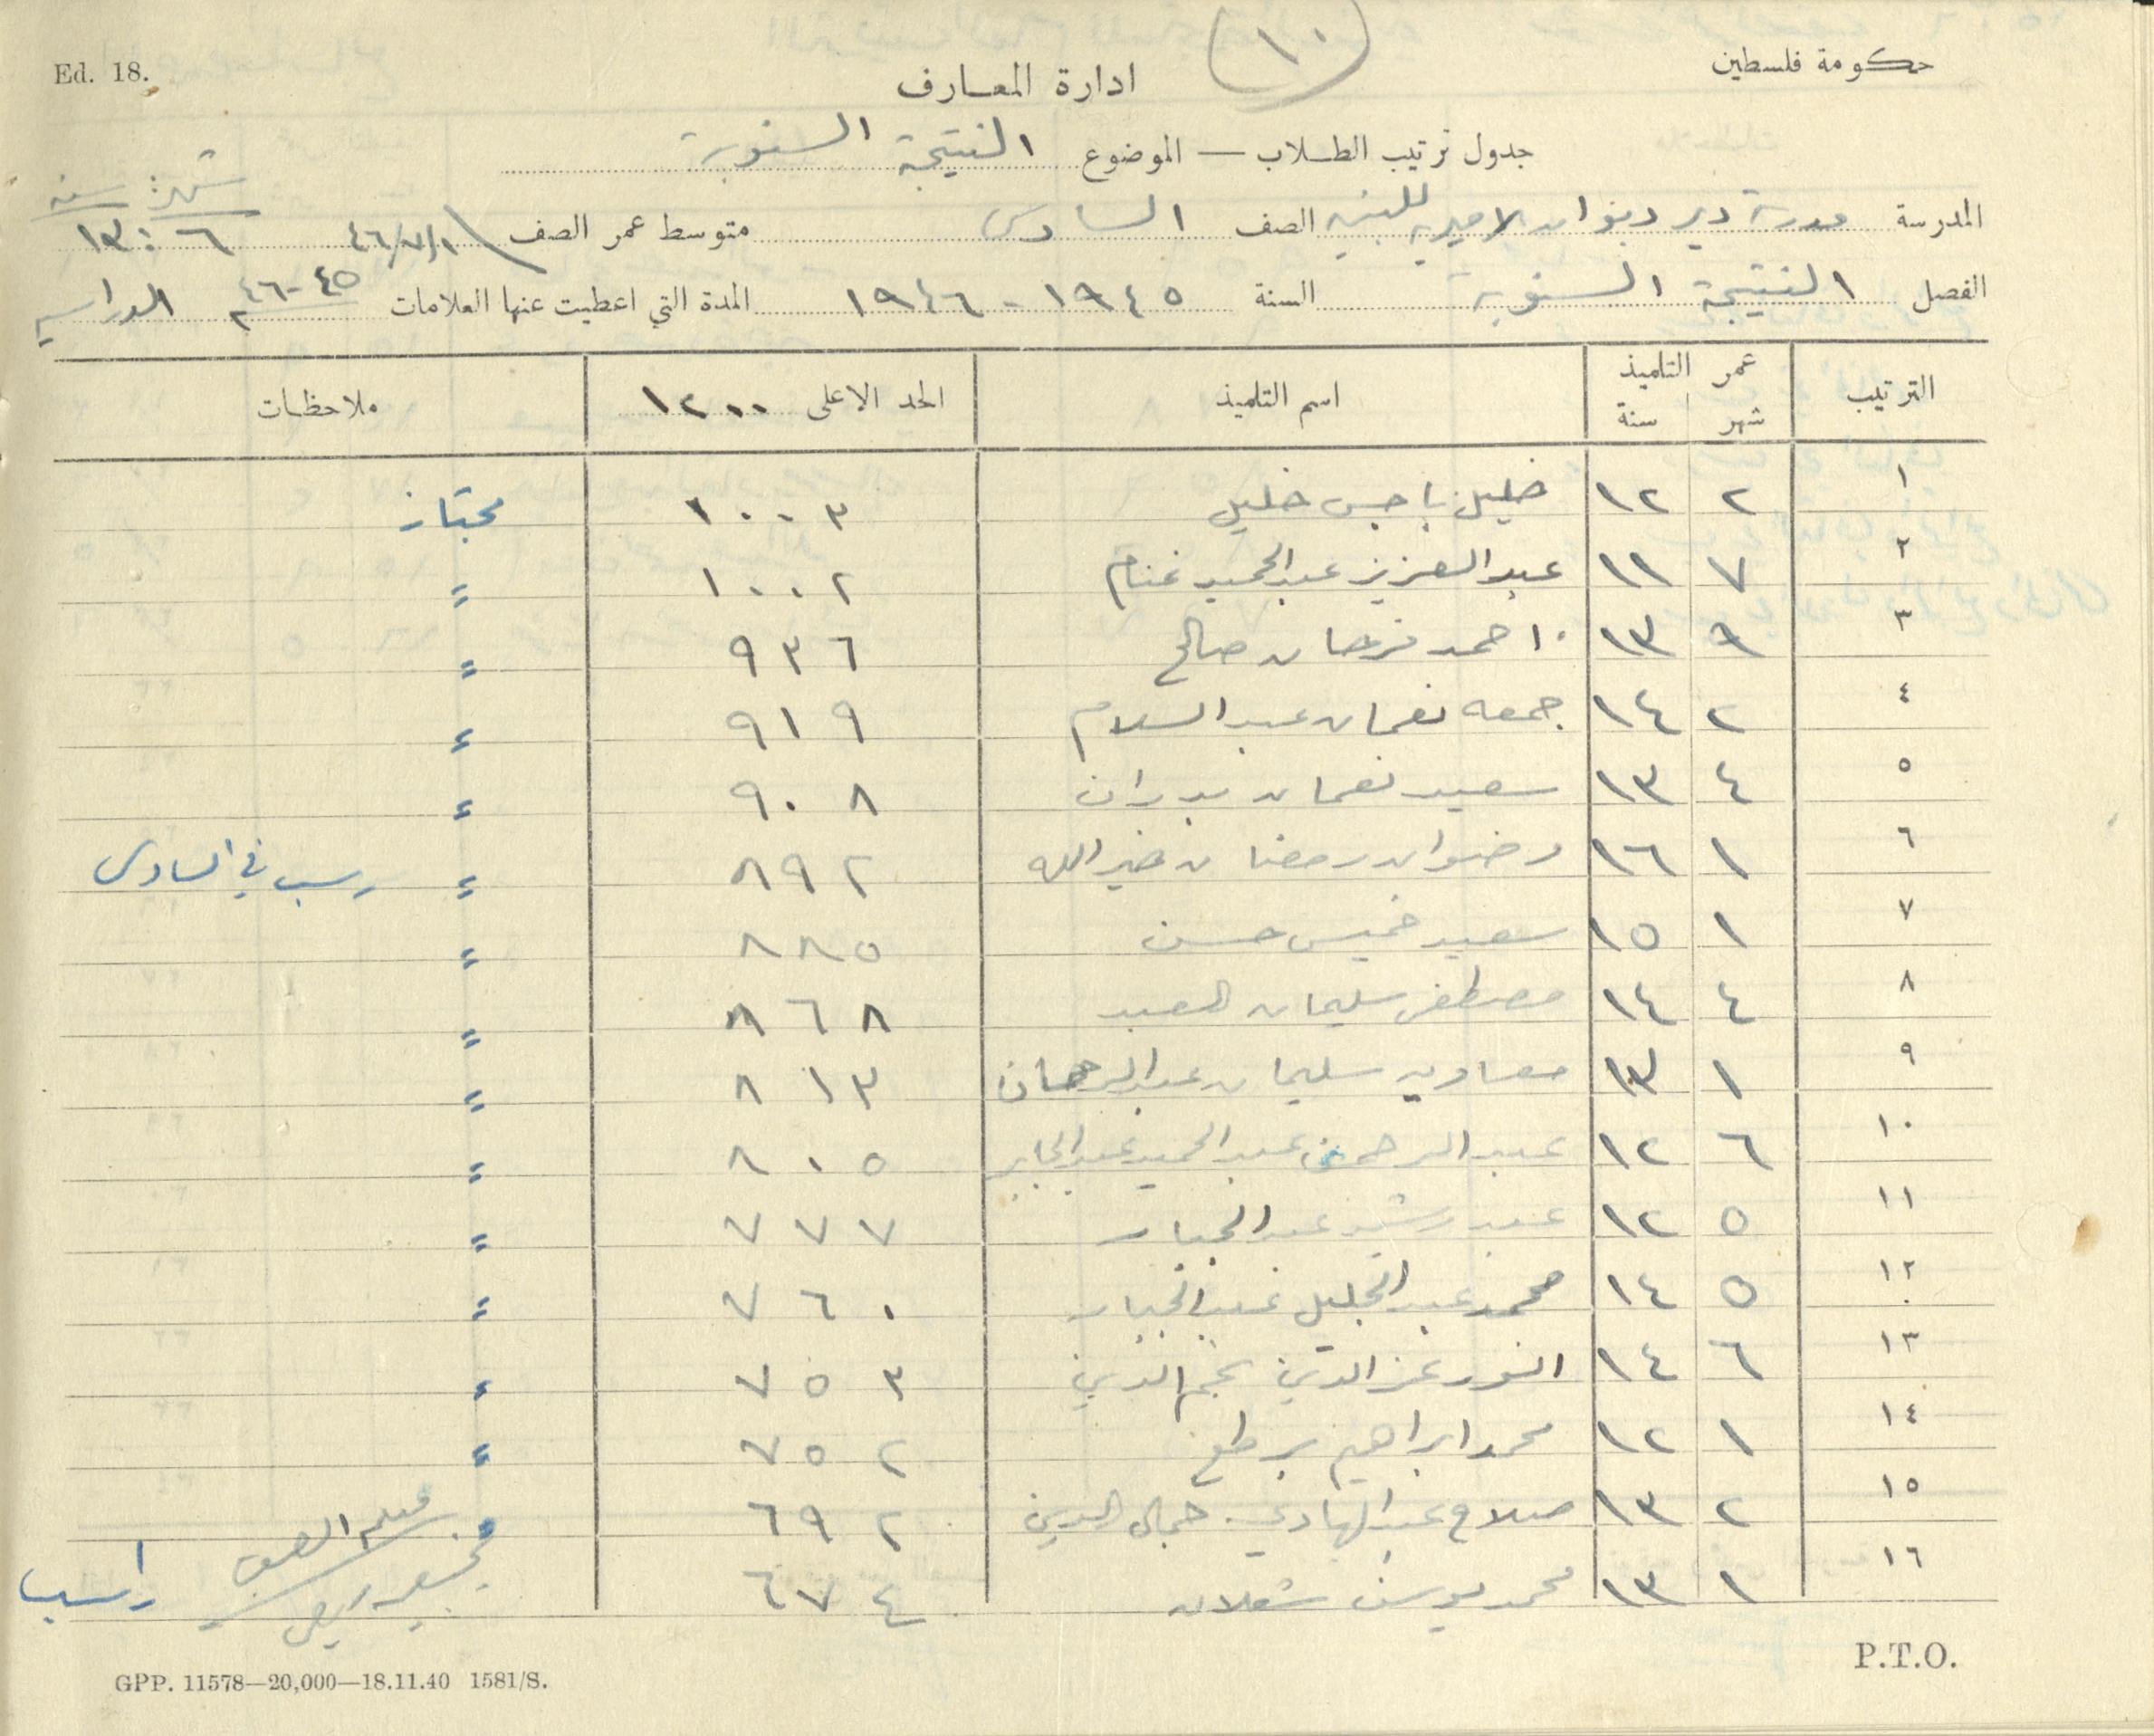 Ed. 18.
١٠
حكومة فلسطين
ادارة المعارف
جدول ترتيب الطلاب — الموضوع النتيجة السنوية
المدرسة مدرسة دير دبوان الاميرية للبنين الصف السادس متوسط عمر الصف ٤٦/٧/١ شهر ٦ : سنة ١٣
الفصل النتيجة السنوية السنة ١٩٤٥ - ١٩٤٦ المدة التي اعطيت عنها العلامات ٤٥-٤٦ م الدراسي
الترتيب عمر التلميذ شهر سنة اسم التلميذ الحد الاعلى ١٢٠٠ ملاحظات
١ ٢ ١٢ خليل باجس خليل ١٠٠٣ مجتاز
٢ ٧ ١١ عبد العزيز عبد الحميد غنام ١٠٠٢ =
٣ ٩ ١٣ احمد فرحان صالح ٩٣٦ =
٤ ٢ ١٤ جمعه نعمان عبد السلام ٩١٩ =
٥ ٤ ١٣ سعيد نعمان بدران ٩٠٨ =
٦ ١ ١٦ رضوان رمضان خير الله ٨٩٢ = رسب في السادس
٧ ١ ١٥ سعيد خميس حسن ٨٨٥ =
٨ ٤ ١٤ مصطفى سليمان العبد ٨٦٨ =
٩ ١ ١٣ معاويه سليمان عبد الرحمان ٨١٣ =
١٠ ٦ ١٢ عبد الرحمن عبد الحميد عبد الجابر ٨٠٥ =
١١ ٥ ١٢ عبد رشيد عبد الجبار ٧٧٧ =
١٢ ٥ ١٤ محمد عبد الجليل عبد الجبار ٧٦٠ =
١٣ ٦ ١٤ انور عز الدين نجم الدين ٧٥٣ =
١٤ ١ ١٢ محمد ابراهيم برطع ٧٥٢ =
١٥ ٢ ١٣ صلاح عبد الهادي جمال الدين ٦٩٢ =
١٦ ١ ١٣ محمد يوسف شعلان ٦٧٤ راسب
معلم الصف
P.T.O.
GPP. 11578—20,000—18.11.40 1581/S.